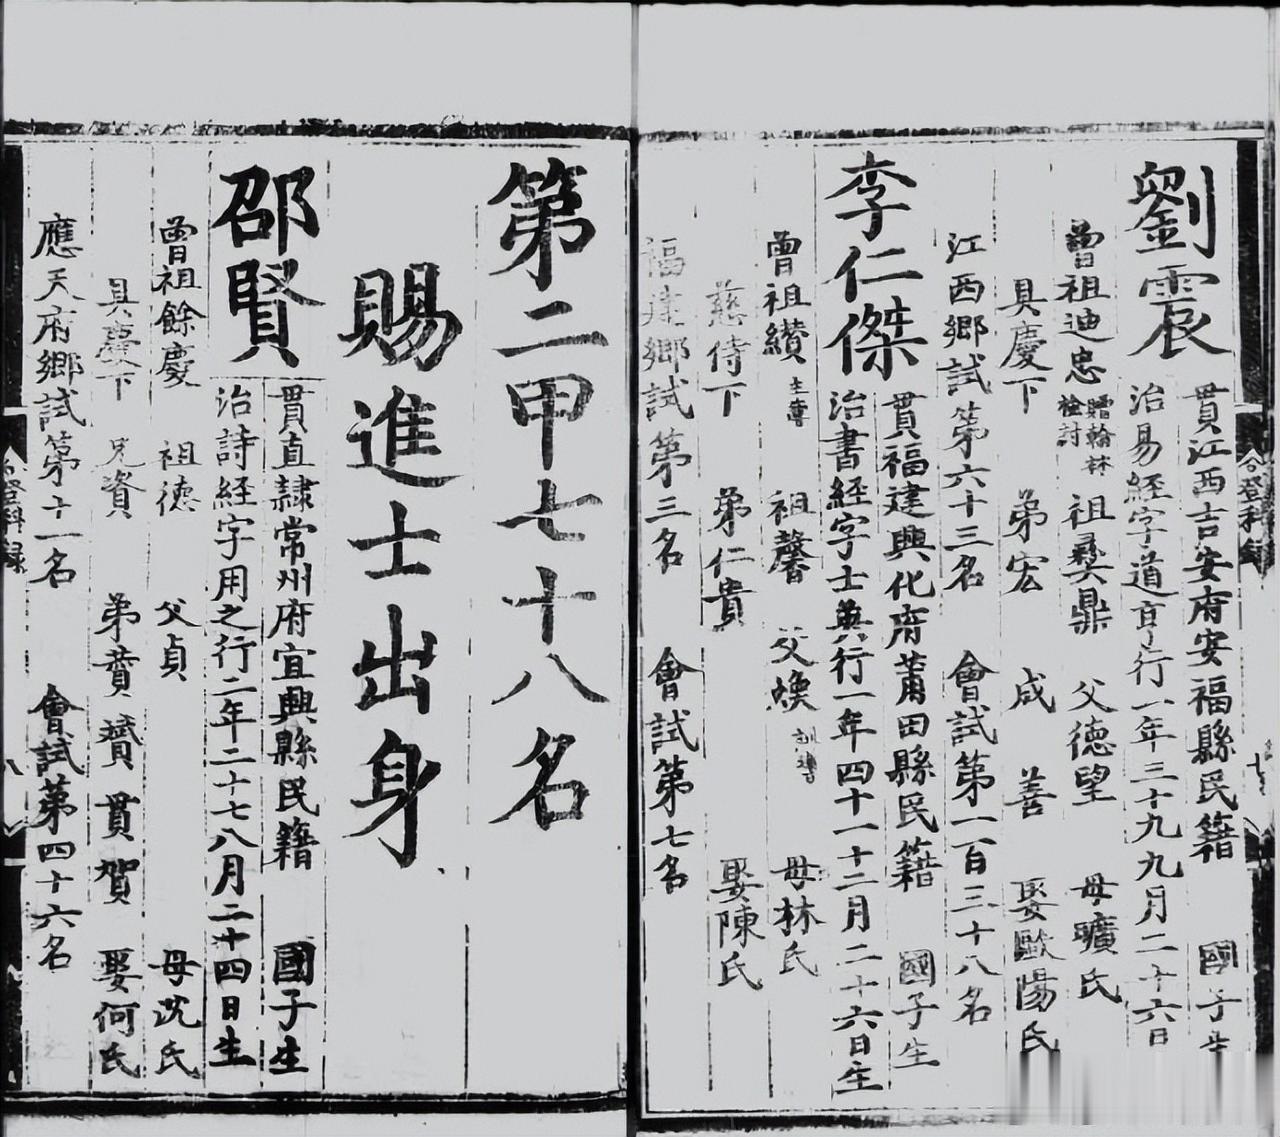 劉震
貫江西吉安府安福縣民籍 國子生
治易經字道亨行一年三十九九月二十六日
曾祖迪忠 贈翰林檢討 祖彝鼎 父德望 母曠氏
具慶下 弟宏 咸 善 娶歐陽氏
江西鄉試第六十三名 會試第一百三十八名
李仁傑
貫福建興化府莆田縣民籍 國子生
治書經字士英行一年四十一十二月二十六日生
曾祖纉 主簿 祖馨 父煥 訓導 母林氏
慈侍下 弟仁貴 娶陳氏
福建鄉試第三名 會試第七名
第二甲七十八名
賜進士出身
邵賢
貫直隸常州府宜興縣民籍 國子生
治詩經字用之行二年二十七八月二十四日生
曾祖餘慶 祖德 父貞 母沈氏
具慶下 兄資 弟賁 贇 貫 賀 娶何氏
應天府鄉試第十一名 會試第四十六名
登科錄
登科錄
七